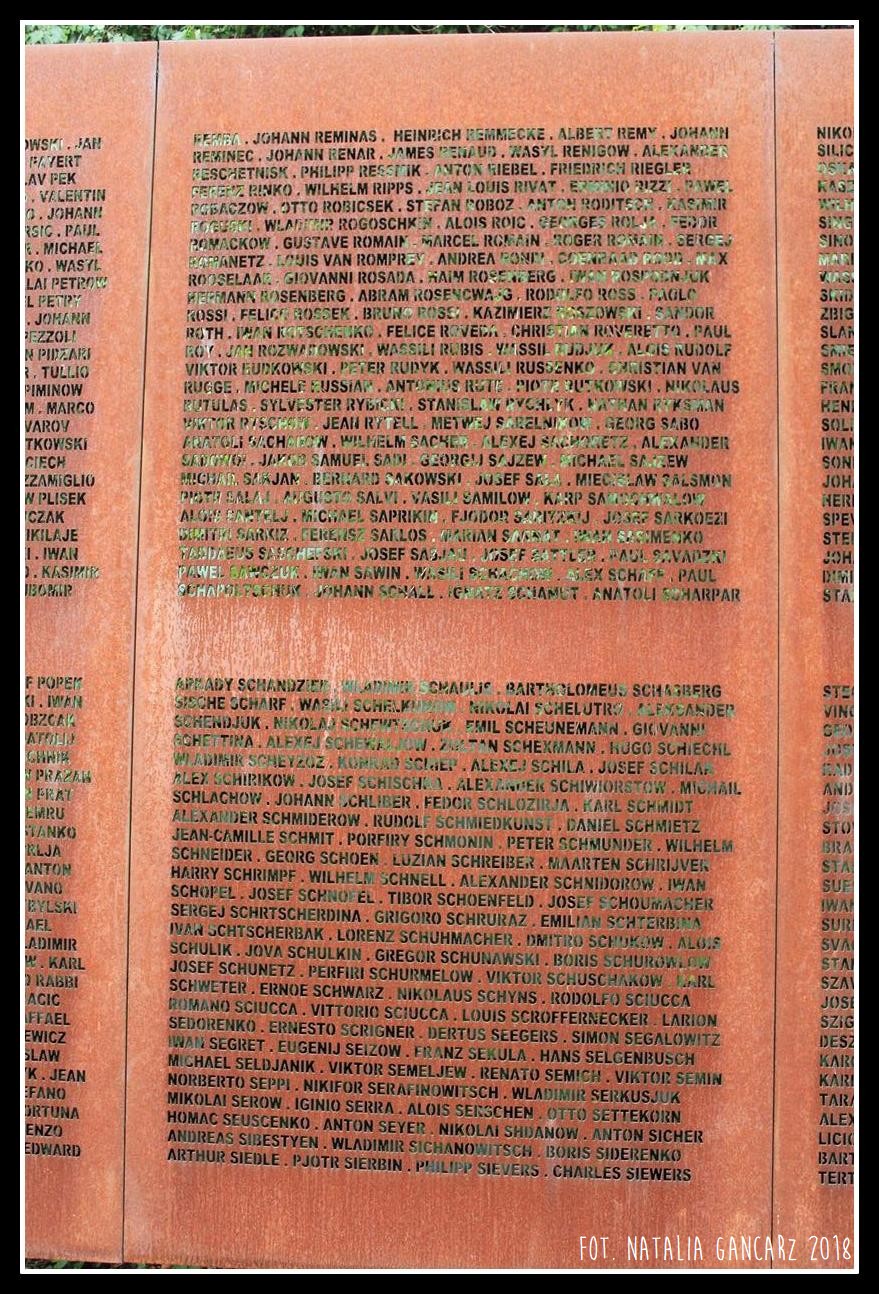 OWSKI . JAN
PAVERT
AV PEK
. VALENTIN
O . JOHANN
RSIC . PAUL
. MICHAEL
KO . WASYL
LAI PETROW
L PETRY
. JOHANN
PEZZOLI
N PIDZARI
. TULLIO
PIMINOW
M . MARCO
VAROV
TKOWSKI
CIECH
ZZAMIGLIO
W PLISEK
CZAK
IKILAJE
I . IWAN
O . KASIMIR
UBOMIR
F POPEK
KI . IWAN
OBZCAK
ATOLIJ
CHNIK
PRAZAN
PRAT
EMRU
TANKO
RLJA
ANTON
VANO
BYLSKI
AEL
LADIMIR
W . KARL
O RABBI
ACIC
AFFAEL
EWICZ
SLAW
K . JEAN
EFANO
ORTUNA
ENZO
EDWARD
REMBA . JOHANN REMINAS . HEINRICH REMMECKE . ALBERT REMY . JOHANN
REMINEC . JOHANN RENAR . JAMES RENAUD . WASYL RENIGOW . ALEXANDER
RESCHETNISK . PHILIPP RESSMIK . ANTON RIEBEL . FRIEDRICH RIEGLER
FERENZ RINKO . WILHELM RIPPS . JEAN LOUIS RIVAT . ERMINIO RIZZI . PAWEL
ROBACZOW . OTTO ROBICSEK . STEFAN ROBOZ . ANTON RODITSCH . KASIMIR
ROGUSKI . WLADIMIR ROGOSCHKIN . ALOIS ROIC . GEORGES ROLJA . FEDOR
ROMACKOW . GUSTAVE ROMAIN . MARCEL ROMAIN . ROGER ROMAIN . SERGEJ
ROMANETZ . LOUIS VAN ROMPREY . ANDREA RONIN . COENRAAD ROOD . MAX
ROOSELAAR . GIOVANNI ROSADA . HAIM ROSENBERG . IWAN ROSPODNJUK
HERMANN ROSENBERG . ABRAM ROSENCWAJG . RODOLFO ROSS . PAOLO
ROSSI . FELICE ROSSEK . BRUNO ROSSI . KAZIMIERZ ROSZOWSKI . SANDOR
ROTH . IWAN ROTSCHENKO . FELICE ROVEDA . CHRISTIAN ROVERETTO . PAUL
ROY . JAN ROZWADOWSKI . WASSILI RUBIS . WASSIL RUDJUK . ALOIS RUDOLF
VIKTOR RUDKOWSKI . PETER RUDYK . WASSILI RUSSENKO . CHRISTIAN VAN
RUGGE . MICHELE RUSSIAN . ANTONIUS RUTE . PIOTR RUTKOWSKI . NIKOLAUS
RUTULAS . SYLVESTER RYBICKI . STANISLAW RYCHLYK . NATHAN RYKSMAN
VIKTOR RYSCHOW . JEAN RYTELL . METWEJ SABELNIKOW . GEORG SABO
ANATOLI SACHADOW . WILHELM SACHER . ALEXEJ SACHORETZ . ALEXANDER
SADOWOI . JAKOB SAMUEL SADI . GEORGIJ SAJZEW . MICHAEL SAJZEW
MICHAIL SAKJAN . BERNARD SAKOWSKI . JOSEF SALA . MIECISLAW SALSMON
PIOTR SALAJ . AUGUSTO SALVI . VASILI SAMILOW . KARP
ALOIS SANTELJ . MICHAEL SAPRIKIN . FJODOR SARITZKIJ . JOSEF SARKOEZI
DIMITRI SARKIZ . FERENSZ SARLOS . MARIAN . IWAN SASIMENKO
TADDAEUS SASCHEFSKI . JOSEF SASJAN . JOSEF SATTLER . PAUL SAVADZKI
PAWEL SAWCZUK . IWAN SAWIN . WASILI SCHACHOW . ALEX SCHAFF . PAUL
SCHAPOLTSCHUK . JOHANN SCHALL . IGNATZ SCHAMUT . ANATOLI SCHARPAR
ARKADY SCHANDZIER . WLADIMIR SCHAULIS . BARTHOLOMEUS SCHASBERG
SISCHE SCHARF . WASILI SCHELKUNOW . NIKOLAI SCHELUTRO . ALEKSANDER
SCHENDJUK . NIKOLAJ SCHEWTSCHUK . EMIL SCHEUNEMANN . GIOVANNI
SCHETTINA . ALEXEJ SCHEWALJOW . ZOLTAN SCHEXMANN . HUGO SCHIECHL
WLADIMIR SCHEYZOZ . KONRAD SCHIEP . ALEXEJ SCHILA . JOSEF SCHILAK
ALEX SCHIRIKOW . JOSEF SCHISCHKA . ALEXANDER SCHIWIORSTOW . MICHAIL
SCHLACHOW . JOHANN SCHLIBER . FEDOR SCHLOZIRJA . KARL SCHMIDT
ALEXANDER SCHMIDEROW . RUDOLF SCHMIEDKUNST . DANIEL SCHMIETZ
JEAN-CAMILLE SCHMIT . PORFIRY SCHMONIN . PETER SCHMUNDER . WILHELM
SCHNEIDER . GEORG SCHOEN . LUZIAN SCHREIBER . MAARTEN SCHRIJVER
HARRY SCHRIMPF . WILHELM SCHNELL . ALEXANDER SCHNIDOROW . IWAN
SCHOPEL . JOSEF SCHNOFEL . TIBOR SCHOENFELD . JOSEF SCHOUMACHER
SERGEJ SCHRTSCHERDINA . GRIGORO SCHRURAZ . EMILIAN SCHTERBINA
IVAN SCHTSCHERBAK . LORENZ SCHUHMACHER . DMITRO SCHUKOW . ALOIS
SCHULIK . JOVA SCHULKIN . GREGOR SCHUNAWSKI . BORIS SCHUROWLOW
JOSEF SCHUNETZ . PERFIRI SCHURMELOW . VIKTOR SCHUSCHAKOW . KARL
SCHWETER . ERNOE SCHWARZ . NIKOLAUS SCHYNS . RODOLFO SCIUCCA
ROMANO SCIUCCA . VITTORIO SCIUCCA . LOUIS SCROFFERNECKER . LARION
SEDORENKO . ERNESTO SCRIGNER . DERTUS SEEGERS . SIMON SEGALOWITZ
IWAN SEGRET . EUGENIJ SEIZOW . FRANZ SEKULA . HANS SELGENBUSCH
MICHAEL SELDJANIK . VIKTOR SEMELJEW . RENATO SEMICH . VIKTOR SEMIN
NORBERTO SEPPI . NIKIFOR SERAFINOWITSCH . WLADIMIR SERKUSJUK
MIKOLAI SEROW . IGINIO SERRA . ALOIS SERSCHEN . OTTO SETTEKORN
HOMAC SEUSCENKO . ANTON SEYER . NIKOLAI SHDANOW . ANTON SICHER
ANDREAS SIBESTYEN . WLADIMIR SICHANOWITSCH . BORIS SIDERENKO
ARTHUR SIEDLE . PJOTR SIERBIN . PHILIPP SIEVERS . CHARLES SIEWERS
NIKO
SILIC
SING
SINO
ZBIG
SLAN
SMO
FRAN
HENI
SOLI
IWAN
SON
JOHA
HERI
SPEV
STEI
JOHA
DIMI
STA
STEC
VINC
GEO
RAD
AND
STO
BRA
STA
SUF
IWAN
SURI
SVA
STAI
SZAV
JOSE
SZIG
DESZ
KARO
KARI
TARA
ALEX
LICIO
BART
TERT
FOT. NATALIA GANCARZ 2018